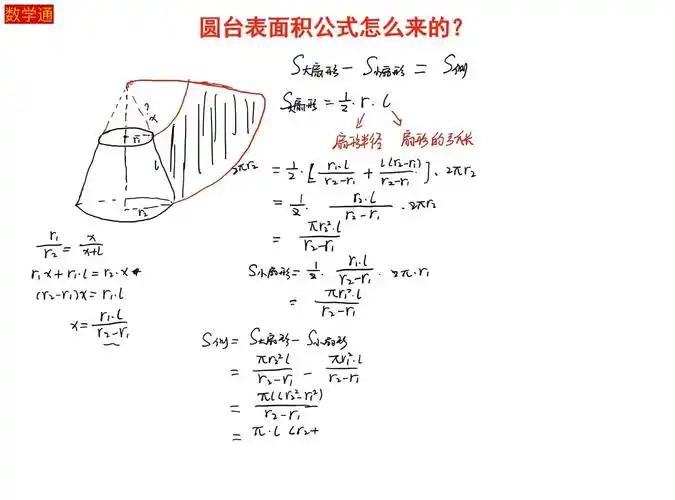 数学通
圆台表面积公式怎么来的？
S大扇形 - S小扇形 = S侧
S大扇形 = 1/2 · r · l
扇形半径 扇形的弧长
= 1/2 · [r₁·l/(r₂-r₁) + l(r₂-r₁)/(r₂-r₁)] · 2πr₂
= 1/2 · r₂·l/(r₂-r₁) · 2πr₂
= πr₂²·l/(r₂-r₁)
S小扇形 = 1/2 · r₁·l/(r₂-r₁) · 2π·r₁
= πr₁²·l/(r₂-r₁)
S侧 = S大扇形 - S小扇形
= πr₂²l/(r₂-r₁) - πr₁²·l/(r₂-r₁)
= πl(r₂²-r₁²)/(r₂-r₁)
= π·l (r₂+
?
x
r₁
l
r₂
2πr₂
r₁/r₂ = x/(x+l)
r₁x + r₁·l = r₂·x
(r₂-r₁)x = r₁·l
x = r₁·l/(r₂-r₁)